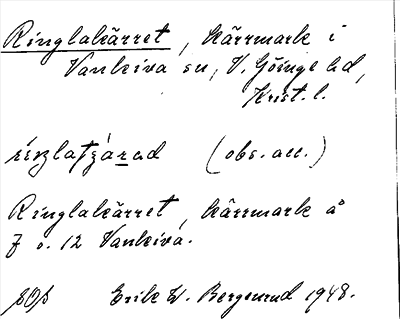 Ringlakärret, kärrmark i
Vankiva sn, V. Göinge hd,
Krist. l.
(obs. acc.)
Ringlakärret, kärrmark å
7 o. 12 Vankiva.
Erik W. Bergsrud 1948.